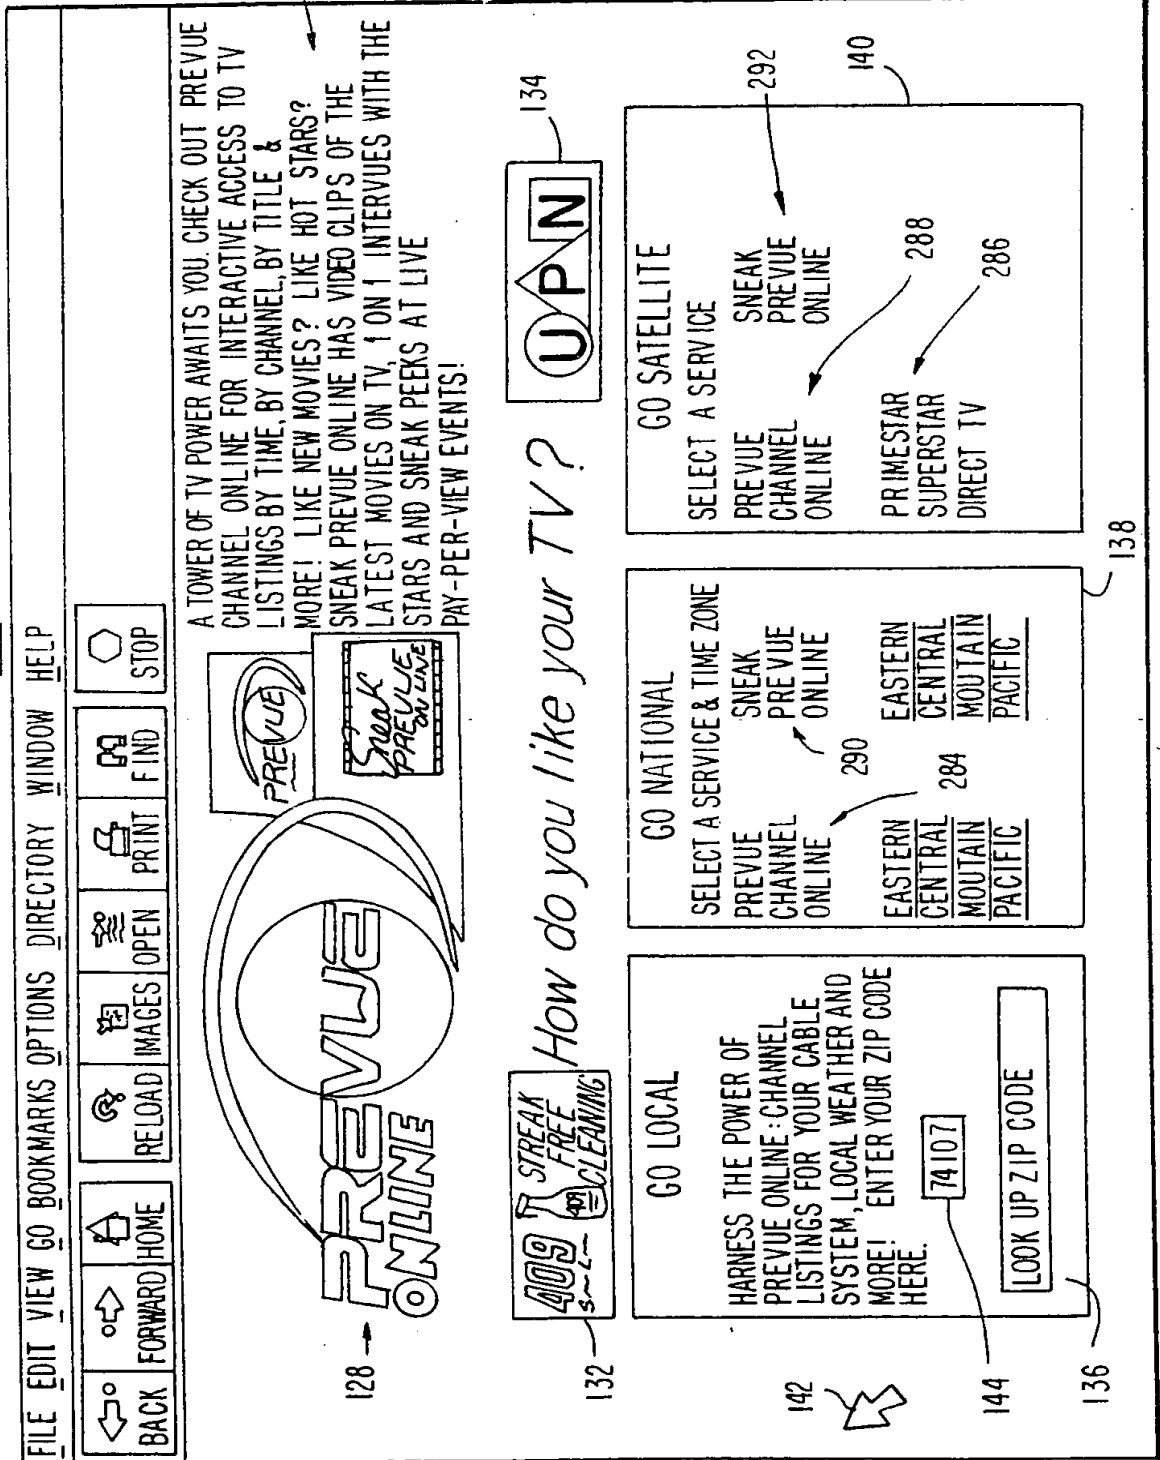 FILE EDIT VIEW GO BOOKMARKS OPTIONS DIRECTORY WINDOW HELP
BACK FORWARD HOME RELOAD IMAGES OPEN PRINT FIND STOP
A TOWER OF TV POWER AWAITS YOU. CHECK OUT PREVUE
CHANNEL ONLINE FOR INTERACTIVE ACCESS TO TV
LISTINGS BY TIME, BY CHANNEL, BY TITLE &
MORE! LIKE NEW MOVIES? LIKE HOT STARS?
SNEAK PREVUE ONLINE HAS VIDEO CLIPS OF THE
LATEST MOVIES ON TV, 1 ON 1 INTERVUES WITH THE
STARS AND SNEAK PEEKS AT LIVE
PAY-PER-VIEW EVENTS!
PREVUE
SNEAK
PREVUE
ON LINE
128
PREVUE
ONLINE
132
409
STREAK
FREE
CLEANING
409
How do you like your TV?
UPN
134
GO LOCAL
HARNESS THE POWER OF
PREVUE ONLINE: CHANNEL
LISTINGS FOR YOUR CABLE
SYSTEM, LOCAL WEATHER AND
MORE! ENTER YOUR ZIP CODE
HERE.
74107
LOOK UP ZIP CODE
142
144
136
GO NATIONAL
SELECT A SERVICE & TIME ZONE
PREVUE
CHANNEL
ONLINE
SNEAK
PREVUE
ONLINE
290
284
EASTERN
CENTRAL
MOUTAIN
PACIFIC
EASTERN
CENTRAL
MOUTAIN
PACIFIC
138
GO SATELLITE
SELECT A SERVICE
PREVUE
CHANNEL
ONLINE
SNEAK
PREVUE
ONLINE
PRIMESTAR
SUPERSTAR
DIRECT TV
292
140
288
286